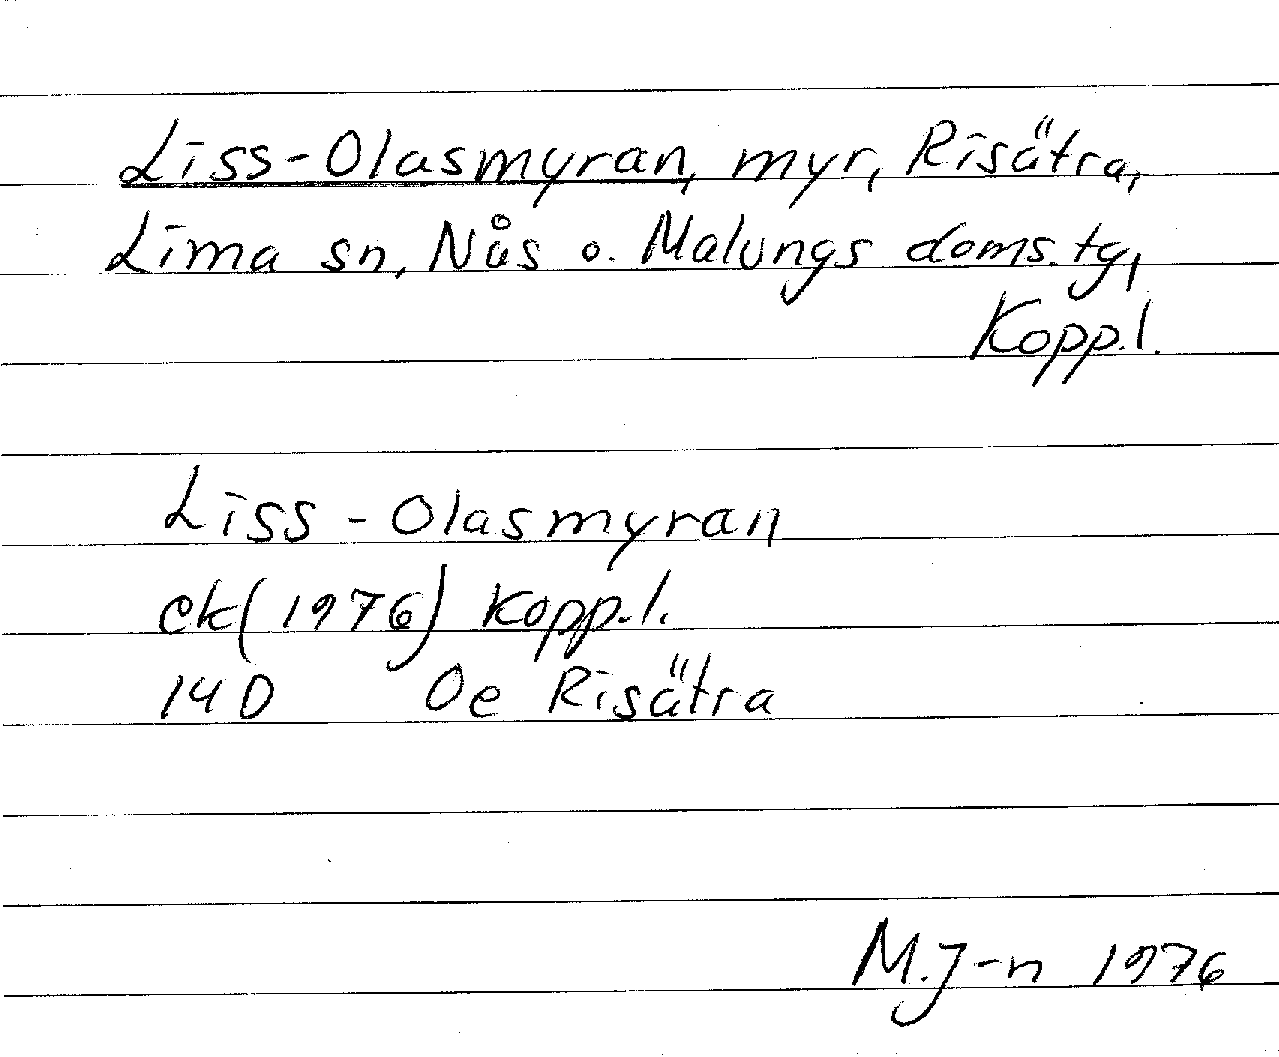 Liss-Olasmyran, myr, Risätra,
Lima sn, Nås o. Malungs doms.tg,
Kopp.l.
Liss-Olasmyran
ek(1976) Kopp.l.
14D Oe Risätra
M.J-n 1976